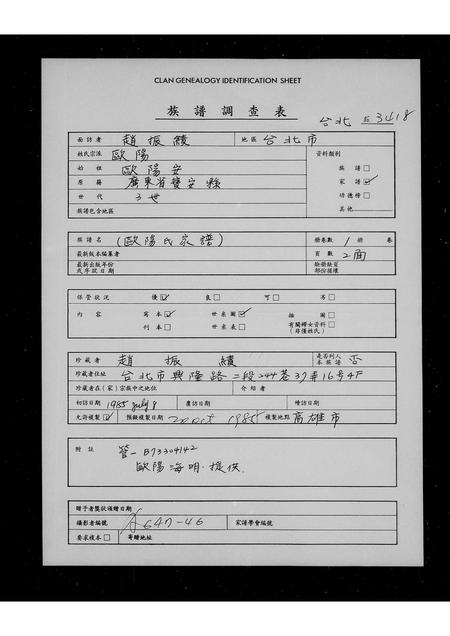 CLAN GENEALOGY IDENTIFICATION SHEET
族譜調查表
台北 3418
面訪者 趙振績 地區 台北市
姓氏宗派 歐陽 資料類別
始祖 歐陽安 族譜□
原籍 廣東省寶安縣 家譜☑
世代 3世 功德榜□
族譜包含地區 其他
族譜名 (歐陽氏家譜) 冊卷數 1 冊 卷
最新版本編纂者 頁數 2面
最新出版年份或序跋日期 缺冊缺頁部份損壞
保管狀況 優☑ 良□ 可□ 劣□
內容 寫本☑ 世系圖☑ 插圖□
刊本□ 世系表□ 有關婦女資料□(非僅姓氏)
珍藏者 趙振績 是否列入本族譜 否
珍藏者住址 台北市興隆路二段244巷37弄16號4F
珍藏者在(家)宗族中之地位 介紹者
初訪日期 1985 July 9 復訪日期 續訪日期
允許複製☑ 預擬複製日期 20 oct 1985 複製地點 高雄市
附註 管一B73304142
歐陽海明.提供.
贈予者獎狀頒贈日期
攝影者編號 647-46 家譜學會編號
要求複本□ 寄贈地址